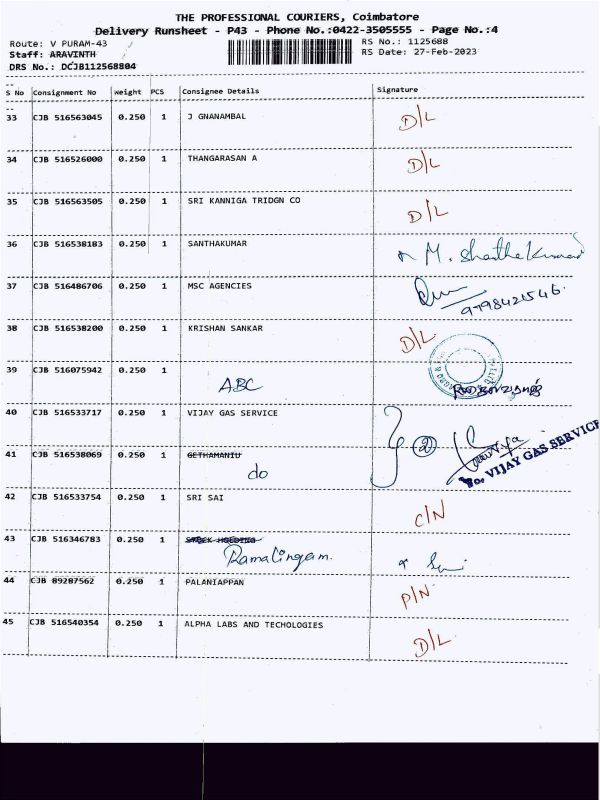 THE PROFESSIONAL COURIERS, Coimbatore
Delivery Runsheet - P43 - Phone No.:0422-3505555 - Page No.:4
Route: V PURAM-43 RS No.: 1125688
Staff: ARAVINTH RS Date: 27-Feb-2023
DRS No.: DCJB112568804
S No Consignment No Weight PCS Consignee Details Signature
33 CJB 516563045 0.250 1 J GNANAMBAL D/L
34 CJB 516526000 0.250 1 THANGARASAN A D/L
35 CJB 516563505 0.250 1 SRI KANNIGA TRIDGN CO D/L
36 CJB 516538183 0.250 1 SANTHAKUMAR M. Shantha Kumar
37 CJB 516486706 0.250 1 MSC AGENCIES
9798421546.
38 CJB 516538200 0.250 1 KRISHAN SANKAR D/L
39 CJB 516075942 0.250 1
ABC
40 CJB 516533717 0.250 1 VIJAY GAS SERVICE
2
For VIJAY GAS SERVICE
41 CJB 516538069 0.250 1 GETHAMANIU
do
42 CJB 516533754 0.250 1 SRI SAI C/N
43 CJB 516346783 0.250 1
Ramalingam.
44 CJB 89287562 0.250 1 PALANIAPPAN P/N
45 CJB 516540354 0.250 1 ALPHA LABS AND TECHOLOGIES D/L